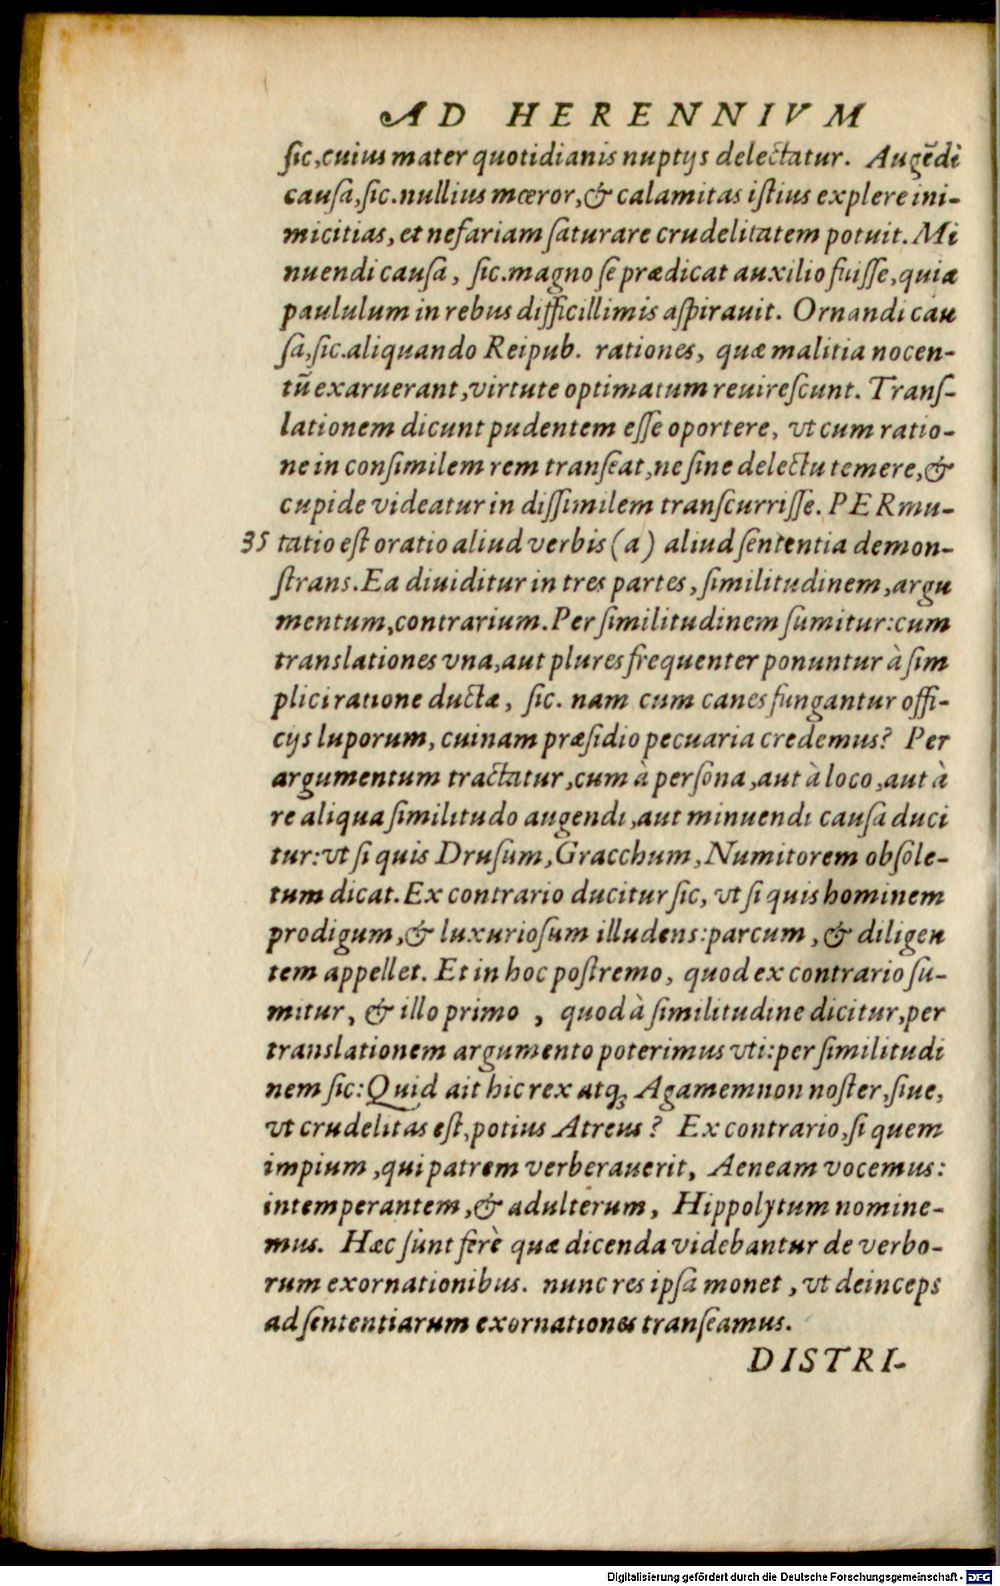 AD HERENNIVM
sic, cuius mater quotidianis nuptijs delectatur. Augēdi
causa, sic. nullius mœror, & calamitas istius explere ini-
micitias, et nefariam saturare crudelitatem potuit. Mi
nuendi causa, sic. magno se prædicat auxilio fuisse, quia
paululum in rebus difficillimis aspirauit. Ornandi cau
sa, sic. aliquando Reipub. rationes, quæ malitia nocen-
tū exaruerant, virtute optimatum reuirescunt. Trans-
lationem dicunt pudentem esse oportere, vt cum ratio-
ne in consimilem rem transeat, ne sine delectu temere, &
cupide videatur in dissimilem transcurrisse. PERmu-
35 tatio est oratio aliud verbis (a) aliud sententia demon-
strans. Ea diuiditur in tres partes, similitudinem, argu
mentum, contrarium. Per similitudinem sumitur: cum
translationes vna, aut plures frequenter ponuntur à sim
plici ratione ductæ, sic. nam cum canes fungantur offi-
cijs luporum, cuinam præsidio pecuaria credemus? Per
argumentum tractatur, cum à persona, aut à loco, aut à
re aliqua similitudo augendi, aut minuendi causa duci
tur: vt si quis Drusum, Gracchum, Numitorem obsole-
tum dicat. Ex contrario ducitur sic, vt si quis hominem
prodigum, & luxuriosum illudens: parcum, & diligen
tem appellet. Et in hoc postremo, quod ex contrario su-
mitur, & illo primo, quod à similitudine dicitur, per
translationem argumento poterimus vti: per similitudi
nem sic: Quid ait hic rex atq; Agamemnon noster, siue,
vt crudelitas est, potius Atreus? Ex contrario, si quem
impium, qui patrem verberauerit, Aeneam vocemus:
intemperantem, & adulterum, Hippolytum nomine-
mus. Hæc sunt ferè quæ dicenda videbantur de verbo-
rum exornationibus. nunc res ipsa monet, vt deinceps
ad sententiarum exornationes transeamus.
DISTRI-
Digitalisierung gefördert durch die Deutsche Forschungsgemeinschaft - DFG